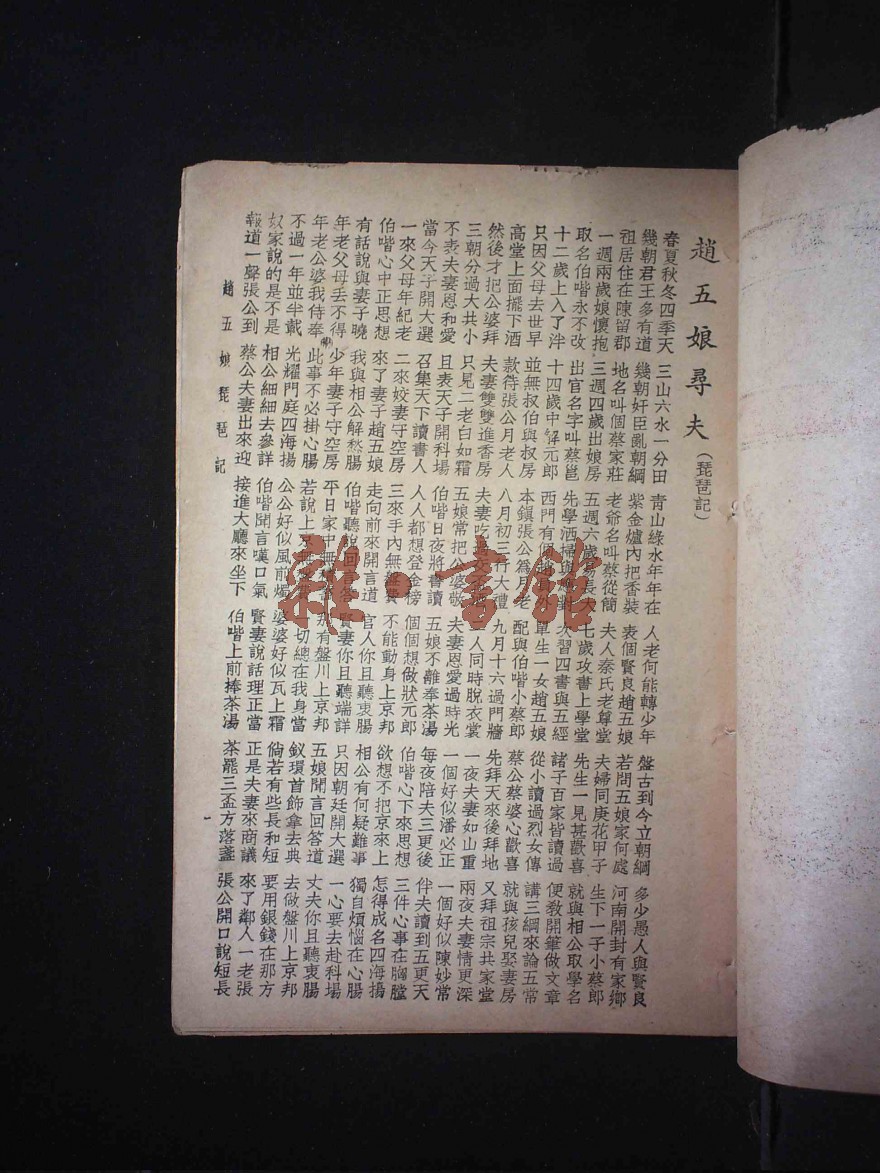 趙五娘尋夫（琵琶記）
春夏秋冬四季天 三山六水一分田 青山綠水年年在 人老何能轉少年 盤古到今立朝綱 多少愚人與賢良
幾朝君王多有道 幾朝奸臣亂朝綱 紫金爐內把香裝 表個賢良趙五娘 若問五娘家何處 河南開封有家鄉
祖居住在陳留郡 地名叫個蔡家莊 老爺名叫蔡從簡 夫人秦氏老尊堂 夫婦同庚花甲子 生下一子小蔡郎
一週兩歲娘懷抱 三週四歲出娘房 五週六歲長大 七歲攻書上學堂 先生一見甚歡喜 就與相公取學名
取名伯喈永不改 出官名字叫蔡邕 先學洒掃與應對 次習四書與五經 諸子百家皆讀過 便教開筆做文章
十二歲上入了泮 十四歲中解元郎 西門有個趙 單生一女趙五娘 從小讀過烈女傳 講三綱來論五常
只因父母去世早 並無叔伯與叔房 本鎮張公爲月老 配與伯喈小蔡郎 蔡公蔡婆心歡喜 就與孩兒娶妻房
高堂上面擺下酒 款待張公月老人 八月初三行大禮 九月十六過門牆 先拜天來後拜地 又拜祖宗共家堂
然後才把公婆拜 夫妻雙雙進香房 夫妻吃 人同時脫衣裳 一夜夫妻如山重 兩夜夫妻情更深
三朝分過大共小 只見二老白如霜 五娘常把公婆敬 夫妻恩愛過時光 一個好似潘必正 一個好似陳妙常
不表夫妻恩和愛 且表天子開科場 伯喈日夜將書讀 五娘不離奉茶湯 每夜陪夫三更後 伴夫讀到五更天
當今天子開大選 召集天下讀書人 人人都想登金榜 個個想做狀元郎 伯喈心下來思想 三件心事在胸膛
一來父母年紀老 二來姣妻守空房 三來手內無盤費 不能動身上京邦 欲想不把京來上 怎得成名四海揚
伯喈心中正思想 來了妻子趙五娘 走向前來開言道 官人你且聽衷腸 相公有何疑難事 獨自煩惱在心腸
有話說與妻子曉 我與相公解愁腸 伯喈聽說回言答 賢妻你且聽端詳 只因朝廷開大選 一心要去赴科場
年老父母丟不得 少年妻子守空房 平日家中無 那有盤川上京邦 五娘聞言回答道 丈夫你且聽衷腸
年老公婆我侍奉 此事不必掛心腸 若說上京無 一切總在我身當 釵環首飾拿去典 去做盤川上京邦
不過一年並半載 光耀門庭四海揚 公公好似風前燭 婆婆好似瓦上霜 倘若有些長和短 要用銀錢在那方
奴家說的是不是 相公細細去參詳 伯喈聞言嘆口氣 賢妻說話理正當 正是夫妻來商議 來了鄰人一老張
報道一聲張公到 蔡公夫妻出來迎 接進大廳來坐下 伯喈上前捧茶湯 茶罷三盃方落盞 張公開口說短長
趙五娘琵琶記
雜·書館